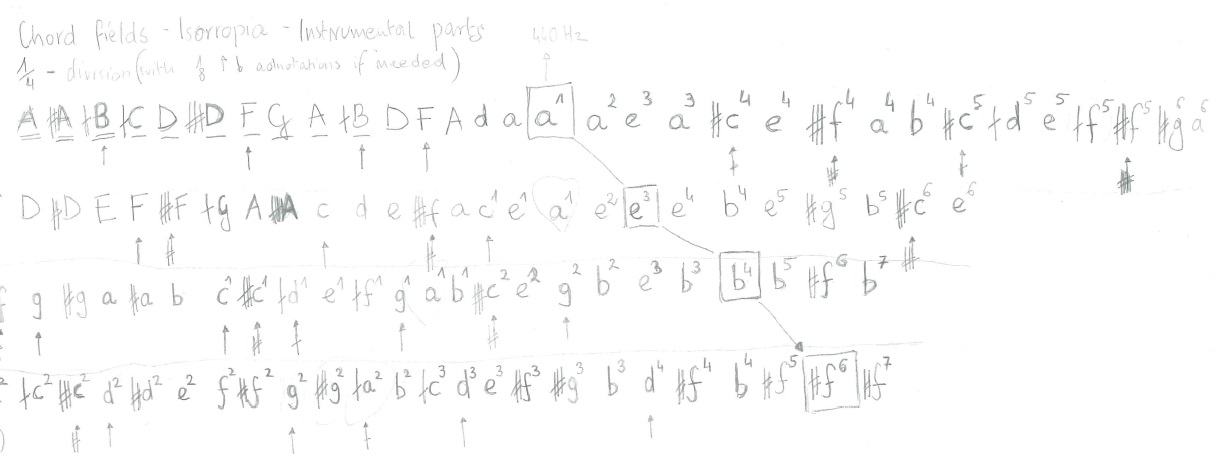 Chord fields - Isorropia - Instrumental parts 440 Hz
1/4 - division (with 1/8 ↑ b adnotations if needed)
A #A ǂB ǂC D #D F G A ǂB D F A d a a¹ a² e³ a³ #c⁴ e⁴ #f⁴ a⁴ b⁴ #c⁵ ǂd⁵ e⁵ ǂf⁵ #f⁵ #g⁶ a⁶
D #D E F #F ǂg A #A c d e #f a c¹ e¹ a¹ e² e³ e⁴ b⁴ e⁵ #g⁵ b⁵ #c⁶ e⁶
g #g a #a b c¹ #c¹ ǂd¹ e¹ ǂf¹ g¹ a¹ b¹ #c² e² g² b² e³ b³ b⁴ b⁵ #f⁶ b⁷
ǂc² #c² d² #d² e² f² #f² g² #g² ǂa² b² ǂc³ d³ e³ #f³ #g³ b³ d⁴ #f⁴ b⁴ #f⁵ #f⁶ #f⁷